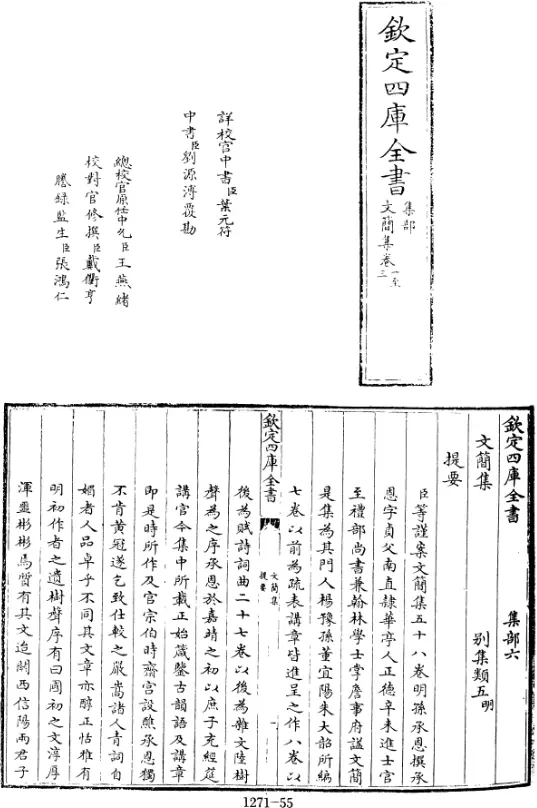 欽定四庫全書
集部
文簡集卷一至三
詳校官中書臣葉元符
中書臣劉源溥覆勘
總校官原任中允臣王燕緒
校對官修撰臣戴衢亨
謄録監生臣張鴻仁
欽定四庫全書
集部六
文簡集
別集類五明
提要
臣等謹案文簡集五十八卷明孫承恩撰承
恩字貞父南直隷華亭人正德辛未進士官
至禮部尚書兼翰林學士掌詹事府諡文簡
是集為其門人楊豫孫董宜陽朱大韶所編
七卷以前為疏表講章皆進呈之作八卷以
欽定四庫全書
文簡集
提要
一
後為賦詩詞曲二十七卷以後為雜文陸樹
聲為之序承恩於嘉靖之初以庶子充經筵
講官今集中所載正始箴鑒古韻語及講章
即是時所作及官宗伯時齋宮設醮承恩獨
不肯黄冠遂乞致仕較之嚴嵩諸人青詞自
媚者人品卓乎不同其文章亦醇正恬雅有
明初作者之遺樹聲序有曰國初之文淳厚
渾噩彬彬焉質有其文迨關西信陽兩君子
1271-55